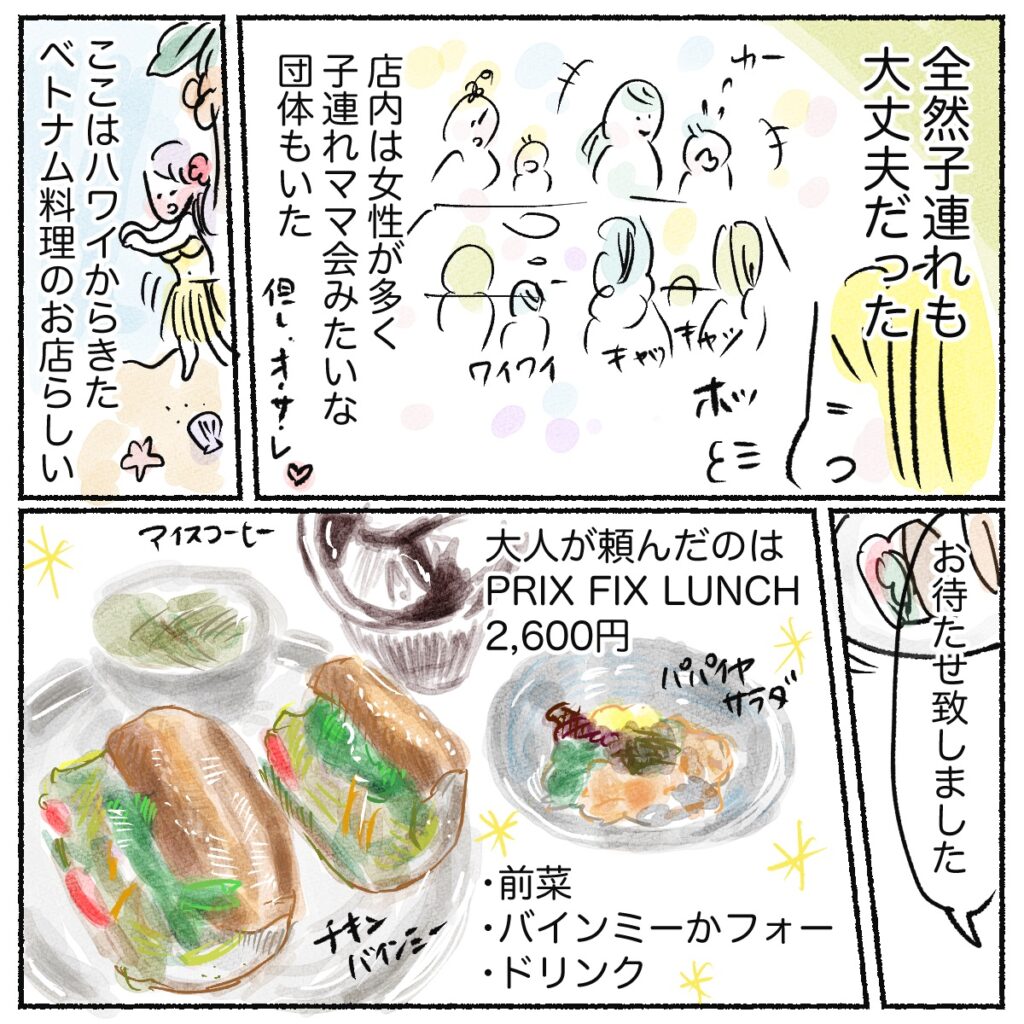 全然子連れも
大丈夫だった
カー
店内は女性が多く
子連れママ会みたいな
団体もいた
但し、オ・サ・レ♡
ワイワイ
キャッ
キャッ
ホッ
と
ここはハワイからきた
ベトナム料理のお店らしい
お待たせ致しました
大人が頼んだのは
PRIX FIX LUNCH
2,600円
アイスコーヒー
パパイヤ
サラダ
チキン
バインミー
・前菜
・バインミーかフォー
・ドリンク